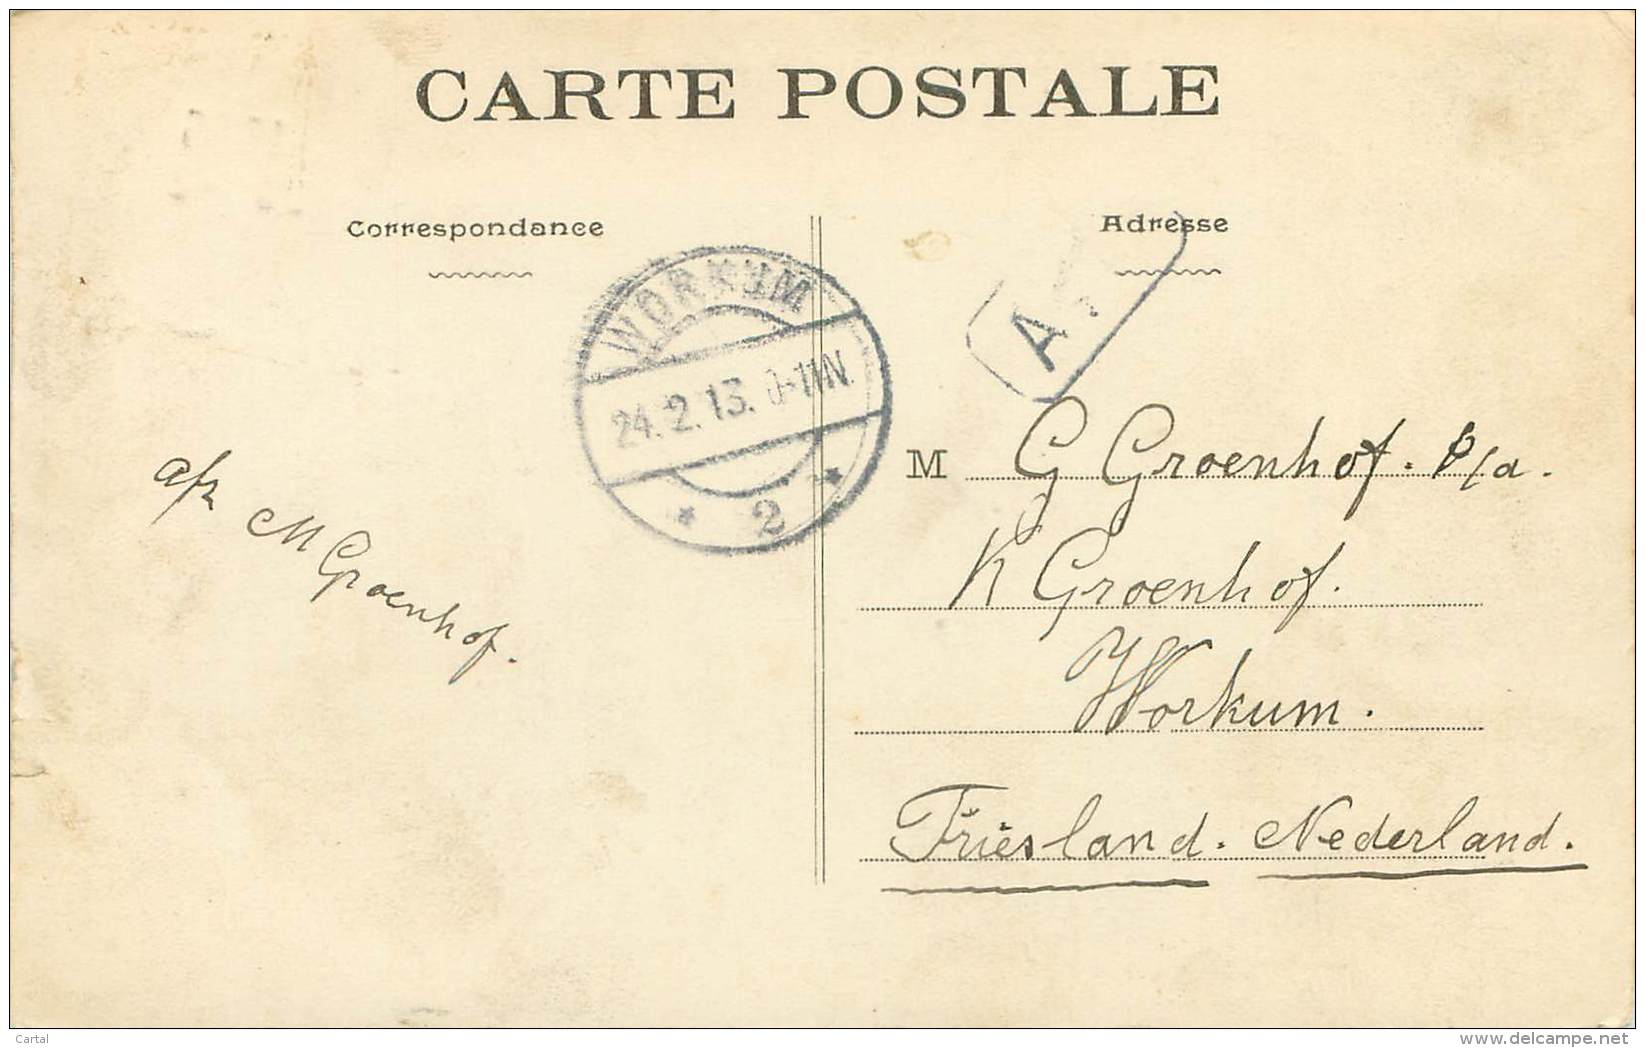 CARTE POSTALE
Correspondance
Adresse
WORKUM
24.2.13. 0-11N.
2
A.
afz M Groenhof.
M G Groenhof. p/a.
K Groenhof.
Workum.
Friesland. Nederland.
Cartal
www.delcampe.net